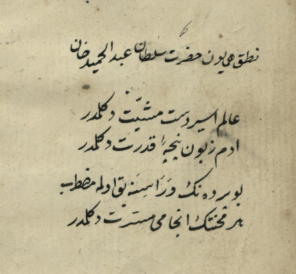 نطق همایون حضرت سلطان عبد الحمید خان
عالم اسیر دست مشیّت دکلدر
ادم زبون پنجهٔ قدرت دکلدر
بو پرده نك وراسنه یوق اوله مضطرب
هر محنتك انجامی مسرت دکلدر